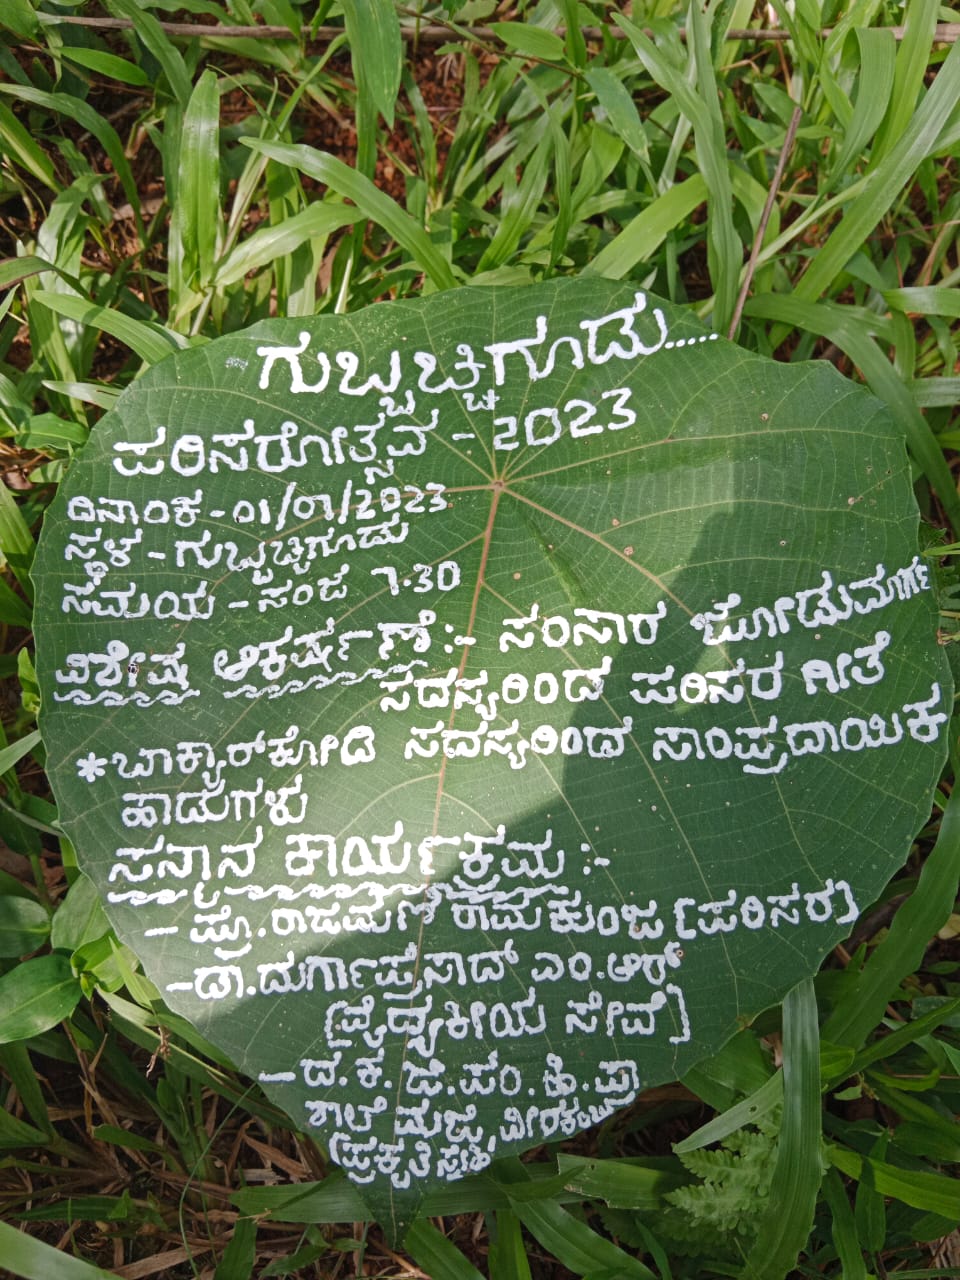 ಗುಬ್ಬಚ್ಚಿಗೂಡು.....
ಪರಿಸರೋತ್ಸವ - 2023
ದಿನಾಂಕ - 01/01/2023
ಸ್ಥಳ - ಗುಬ್ಬಚ್ಚಿಗೂಡು
ಸಮಯ - ಸಂಜೆ 7.30
ವಿಶೇಷ ಆಕರ್ಷಣೆ :- ಸಂಸಾರ ಜೋಡುಮಾರ್ಗ
ಸದಸ್ಯರಿಂದ ಪರಿಸರ ಗೀತೆ
*ಬಾಕ್ಯಾರ್‌ಕೋಡಿ ಸದಸ್ಯರಿಂದ ಸಾಂಪ್ರದಾಯಿಕ
ಹಾಡುಗಳು
ಸನ್ಮಾನ ಕಾರ್ಯಕ್ರಮ :-
- ಪ್ರೊ.ರಾಜಮಣಿ ರಾಮಕುಂಜ (ಪರಿಸರ)
-ಡಾ.ದುರ್ಗಾಪ್ರಸಾದ್ ಎಂ.ಆರ್
(ವೈದ್ಯಕೀಯ ಸೇವೆ)
- ದ.ಕ.ಜಿ.ಪಂ.ಹಿ.ಪ್ರಾ
ಶಾಲೆ ಮಜಿ, ವೀರಕಂಬ
(ಪ್ರಕೃತಿ ಸ್ನೇಹಿ